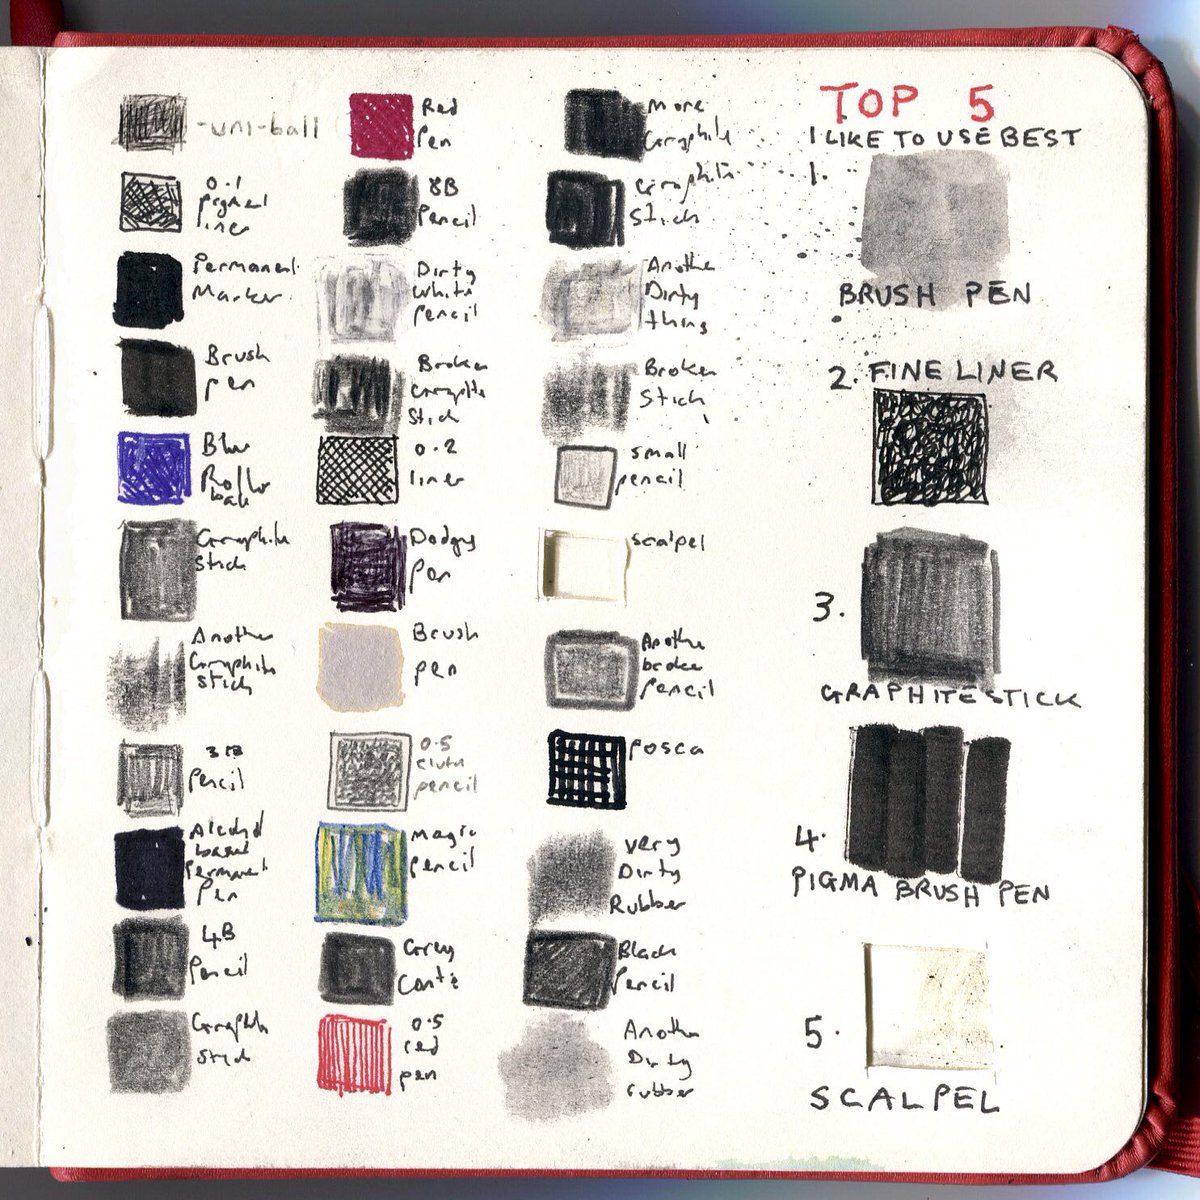 -uni-ball
0.1
pigment
liner
Permanent
Marker
Brush
pen
Blue
Roller
ball
Graphite
stick
Another
Graphite
stick
3B
Pencil
Alcohol
based
Permanent
Pen
4B
Pencil
Graphite
stick
Red
Pen
8B
Pencil
Dirty
White
pencil
Broken
Graphite
Stick
0.2
liner
Dodgy
Pen
Brush
pen
0.5
clutch
pencil
Magic
pencil
Grey
Conté
0.5
red
pen
More
Graphite
Graphite
Stick
Another
Dirty
thing
Broken
Stick
small
pencil
scalpel
Another
broken
pencil
Posca
Very
Dirty
Rubber
Black
Pencil
Another
Dirty
rubber
TOP 5
I LIKE TO USE BEST
1.
BRUSH PEN
2. FINE LINER
3.
GRAPHITE STICK
4.
PIGMA BRUSH PEN
5.
SCALPEL